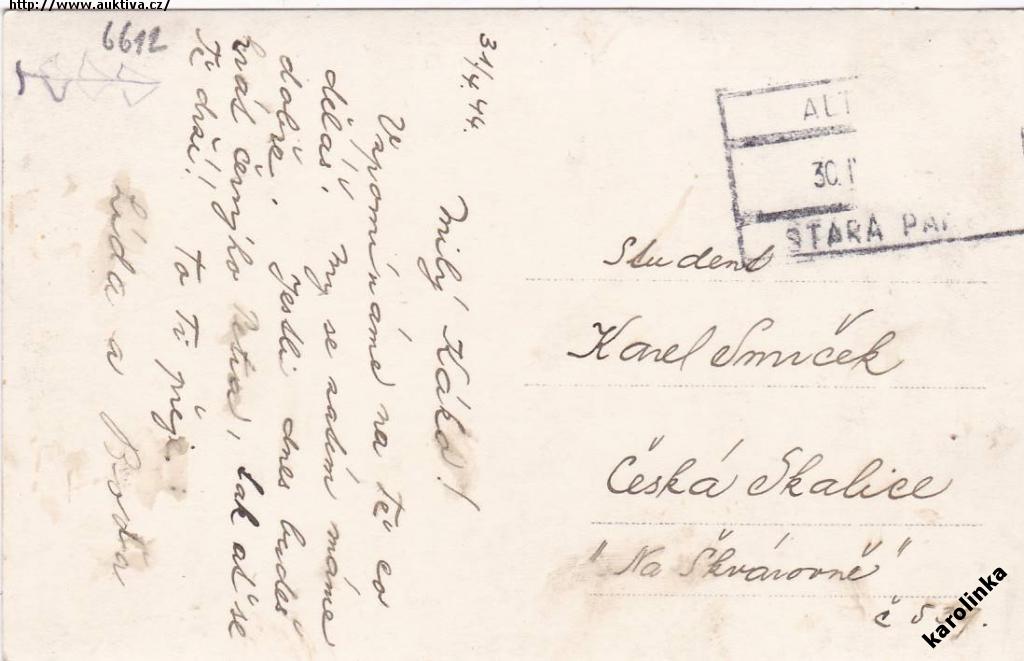 http://www.auktiva.cz/
6612
31/4.44.
Milý Káko!
Vzpomínáme na tě co
děláš. My se zatím máme
dobře. Jestli dnes budeš
hrát černýho Petra, tak ať se
Ti drží! To Ti přej.
Lída a
ALT
30.
STARA PA
Student
Karel Smrček
Česká Skalice
"Na Škvárovně"
č
karolinka